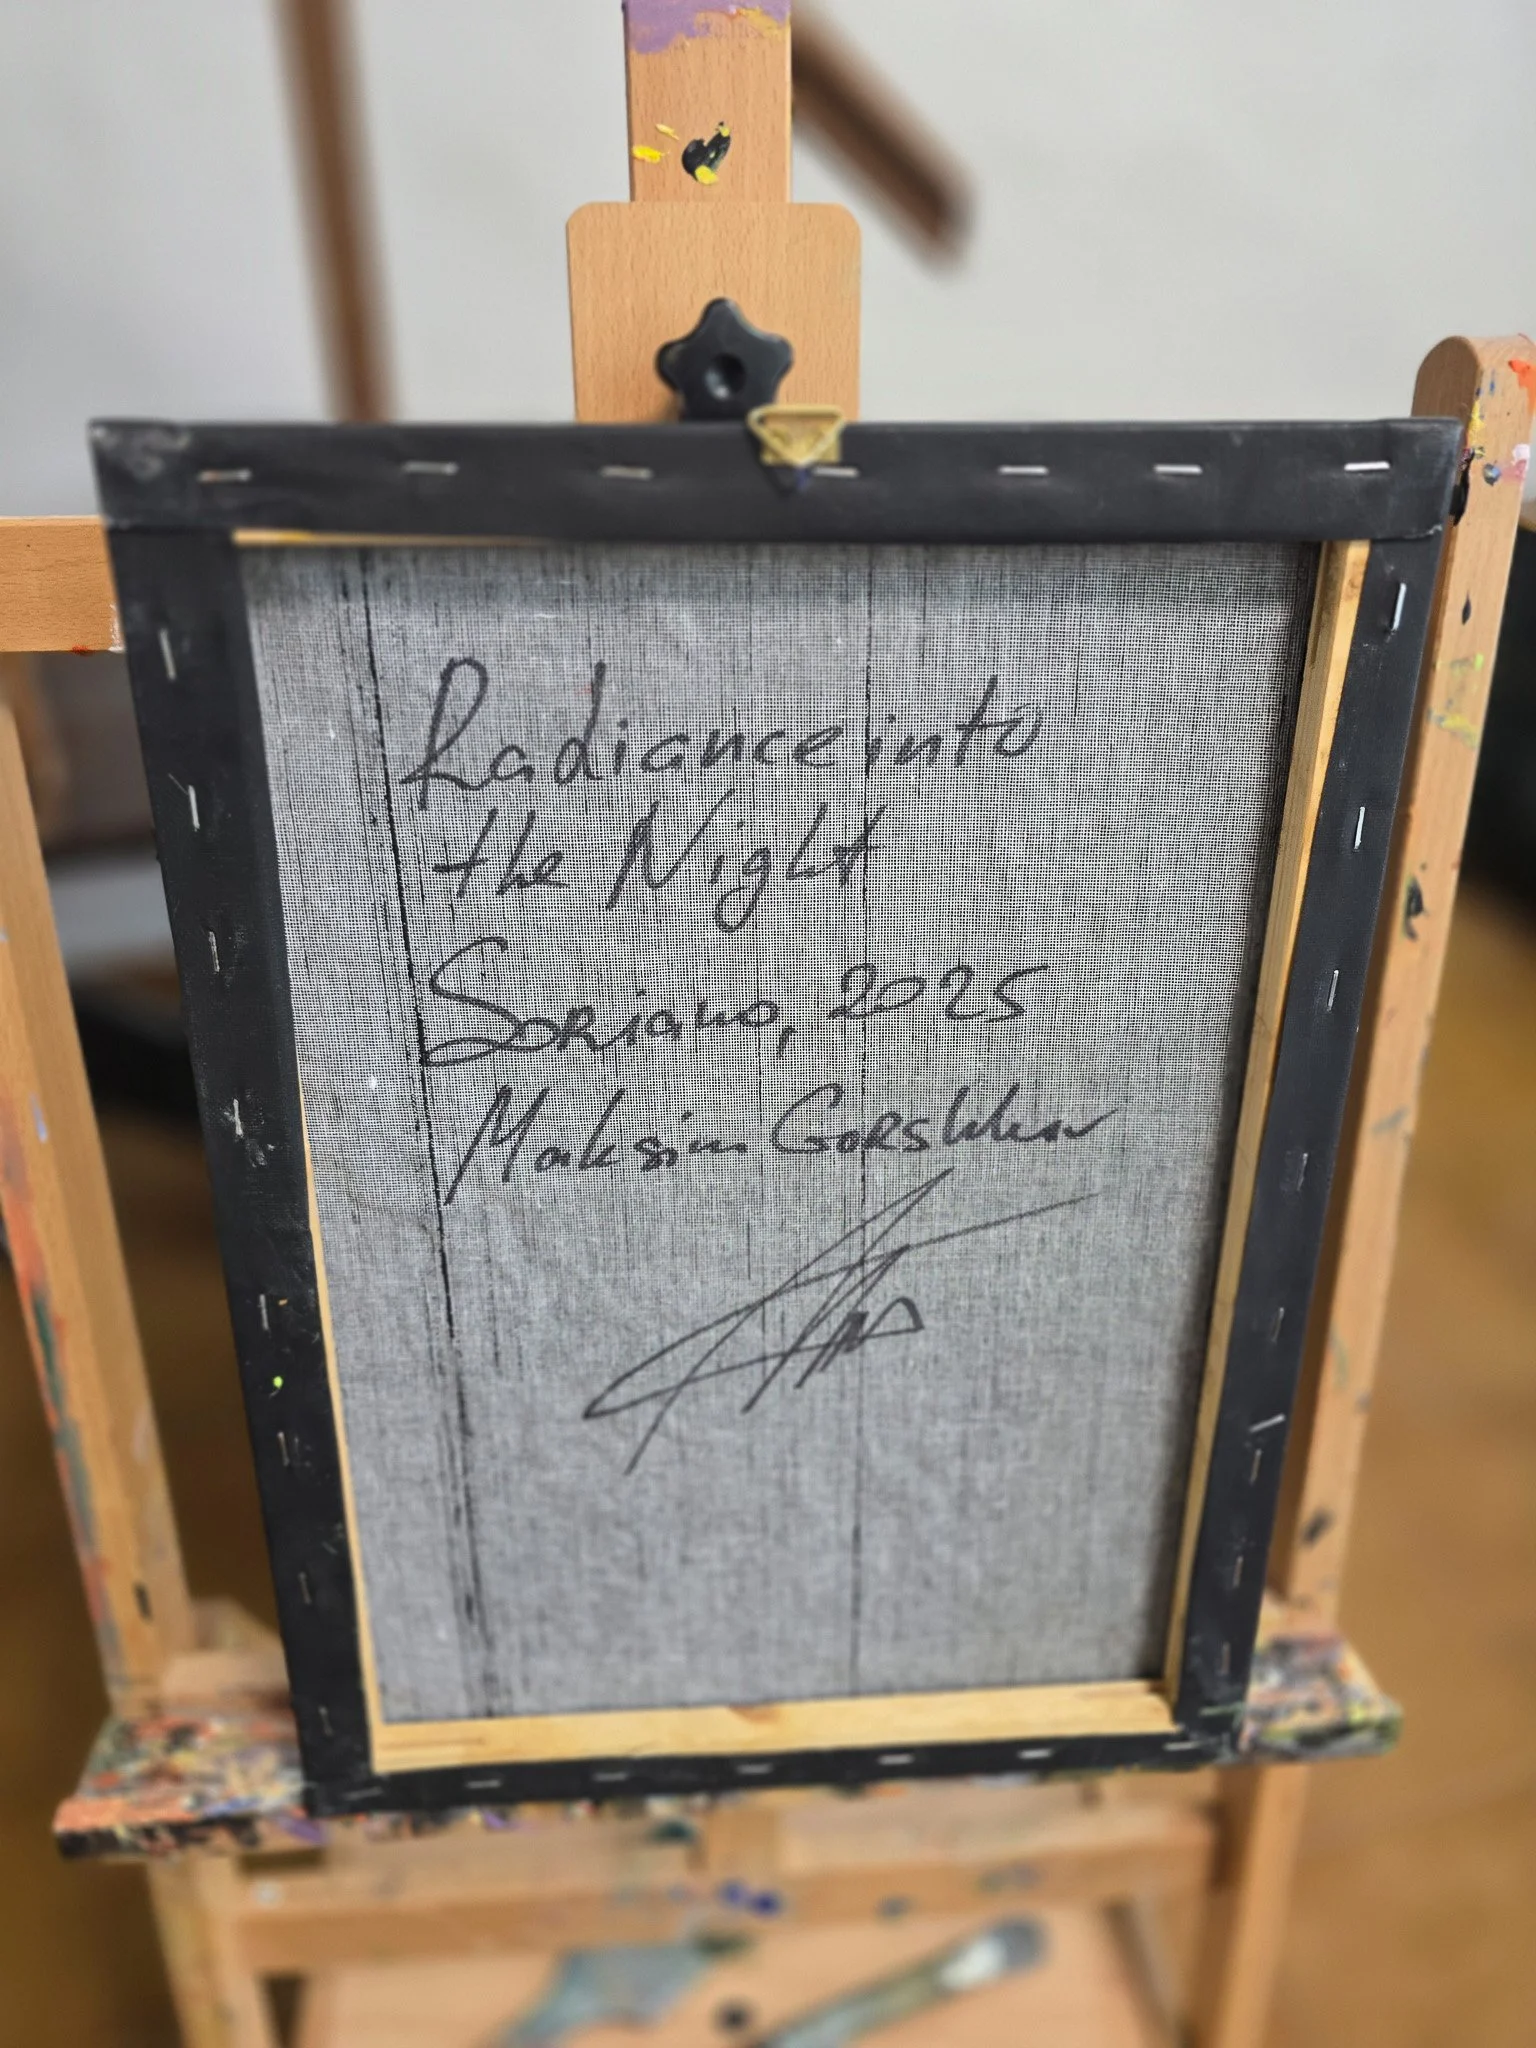 Radiance into
the Night
Soriano, 2025
Maksim Gorshkov